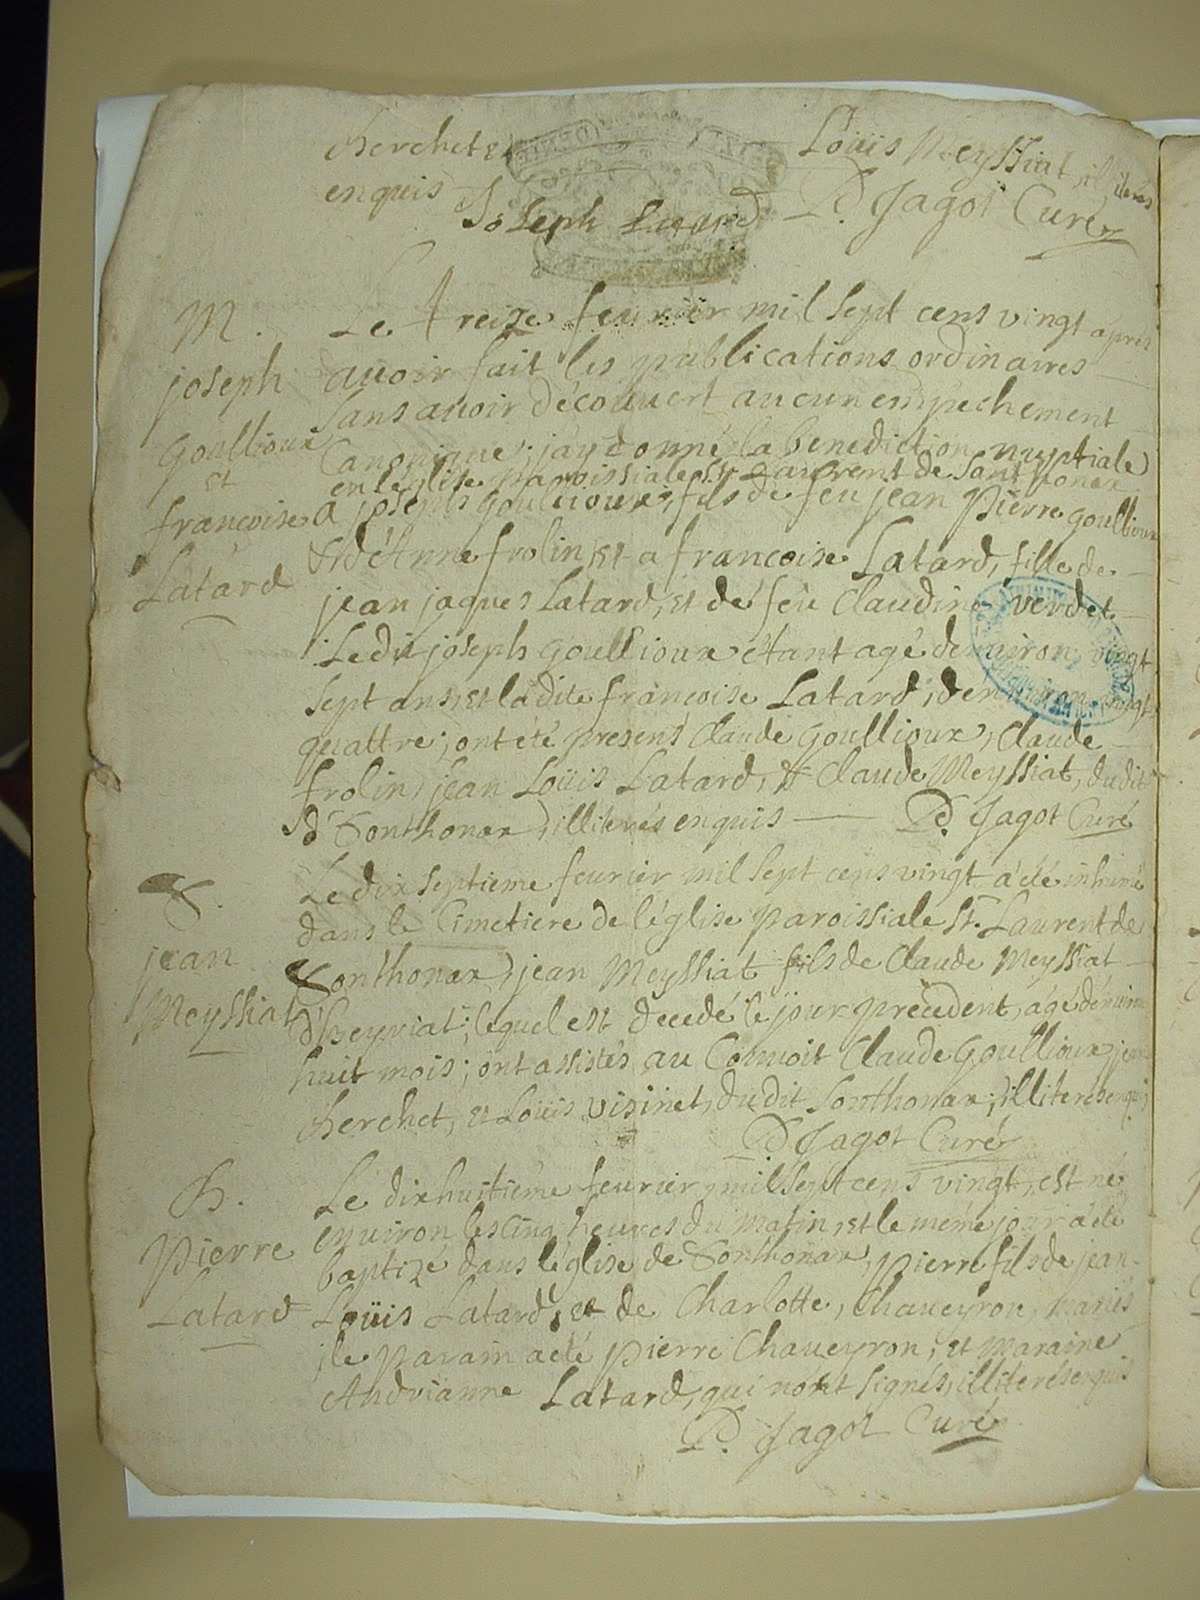 cherchet et Louis Meyssiat, illiterés
enquis Joseph Latard D. Jagot Curé
M. Le treize feurier mil sept cens vingt apres
joseph auoir fait les publications ordinaires
sans auoir découuert aucun empêchement
Goullioux Canonique; j'ay donné la benediction nuptiale
et en l'église paroissiale St Laurent de Sonthonax
françoise a joseph Goullioux, fils de feu jean Pierre Goullioux
& d'Anne frolin, et a françoise Latard, fille de
Latard jean jaques Latard, et de feüe Claudine verdet
Ledit joseph Goullioux étant agé denuiron vingt
sept ans, et ladite françoise Latard, denuiron vingt
quattre; ont été presens Claude Goullioux, Claude
frolin, jean Loüis Latard, & Claude Meyssiat, dudit
Sonthonax, illiterés enquis D. Jagot Curé
S. Le dix septieme feurier mil sept cens vingt a été inhumé
dans le Cimetiere de l'église paroissiale St. Laurent de
jean Sonthonax, jean Meyssiat fils de Claude Meyssiat
Meyssiat d'heyriat; lequel est decedé le jour précedent, agé denuiron
huit mois; ont assistés au Conuoit Claude Goullioux, jean
cherchet, et Loüis visinet, dudit Sonthonax; illiterés enquis
D. Jagot Curé
B. Le dixhuitieme feurier, mil sept cens vingt, est né
enuiron les cinq heures du matin, et le méme jour a été
Pierre baptizé dans l'église de Sonthonax, pierre fils de jean
Latard Loüis Latard, et de Charlotte, Chaueyron, mariés
; le parain a été pierre Chaueyron, et maraine
Andrianne Latard, qui n'ont signés, illiterés enquis
D. Jagot Curé